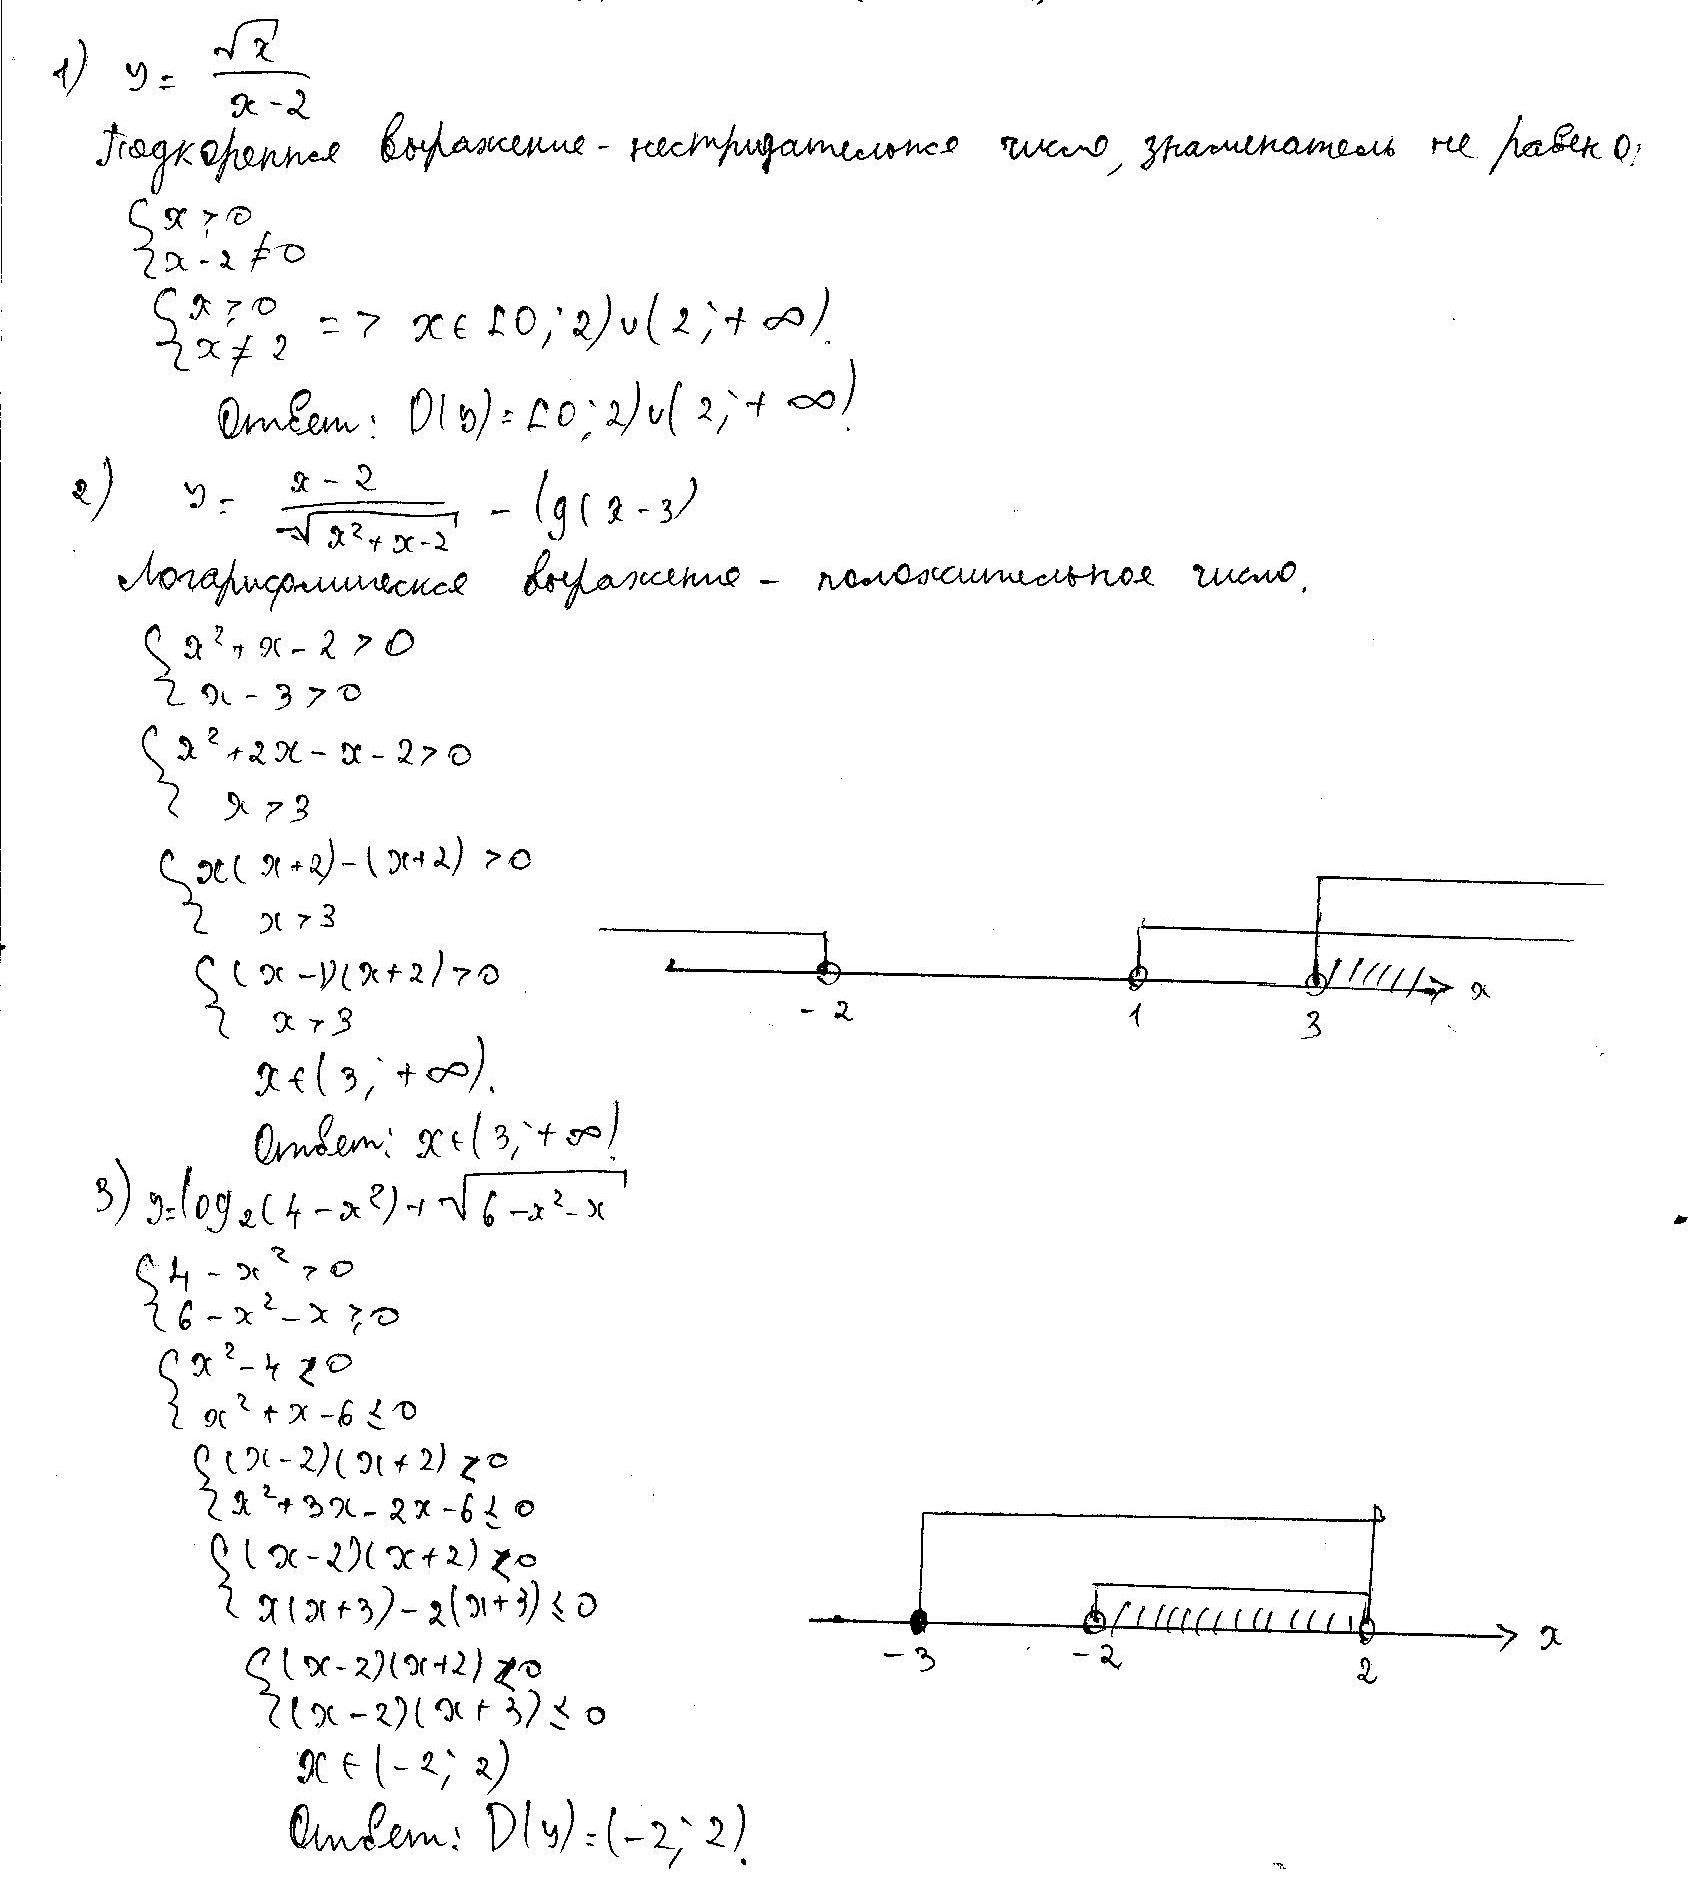 1) y = √x / (x - 2)
Подкоренное выражение - неотрицательное число, знаменатель не равен 0,
{ x ≥ 0
{ x - 2 ≠ 0
{ x ≥ 0
{ x ≠ 2 => x ∈ [0; 2) ∪ (2; + ∞).
Ответ: D(y) = [0; 2) ∪ (2; + ∞).
2) y = (x - 2) / √(x² + x - 2) - lg(x - 3)
Логарифмическое выражение - положительное число.
{ x² + x - 2 > 0
{ x - 3 > 0
{ x² + 2x - x - 2 > 0
{ x > 3
{ x(x + 2) - (x + 2) > 0
{ x > 3
{ (x - 1)(x + 2) > 0
{ x > 3
-2 1 3 x
x ∈ (3; + ∞).
Ответ: x ∈ (3; + ∞)
3) y = log₂(4 - x²) + √(6 - x² - x)
{ 4 - x² > 0
{ 6 - x² - x ≥ 0
{ x² - 4 < 0
{ x² + x - 6 ≤ 0
{ (x - 2)(x + 2) < 0
{ x² + 3x - 2x - 6 ≤ 0
{ (x - 2)(x + 2) < 0
{ x(x + 3) - 2(x + 3) ≤ 0
{ (x - 2)(x + 2) < 0
{ (x - 2)(x + 3) ≤ 0
-3 -2 2 x
x ∈ (-2; 2)
Ответ: D(y) = (-2; 2).